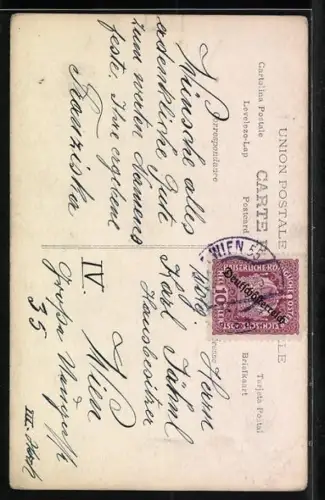 UNION POSTALE
CARTE
Cartolina Postale
Levelezo-Lap
Postcard
Correspondance
Briefkaart
Tarjeta Postal
Wünsche alles
erdenkliche Gute
zum werten Namens
feste. Ihre ergebene
Franziska
WIEN 55
KAISERLICHE KÖ
Deutschösterreich
10
Herrn
Karl Jähnl
Hausbesitzer
Wien
IV.
Große
35
III. Stock